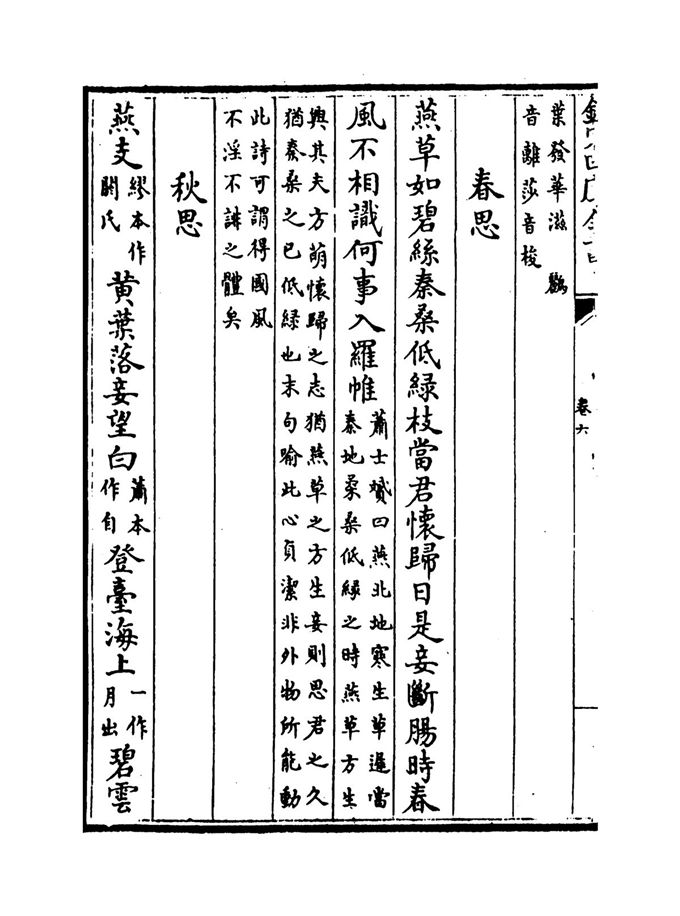 卷六
葉發華滋 鸝
音離莎音梭
春思
燕草如碧絲秦桑低緑枝當君懷歸日是妾斷腸時春
風不相識何事入羅帷蕭士贇曰燕北地寒生草遲當
秦地柔桑低緑之時燕草方生
興其夫方萌懷歸之志猶燕草之方生妾則思君之久
猶秦桑之已低緑也末句喻此心貞潔非外物所能動
此詩可謂得國風
不淫不誹之體矣
秋思
燕支繆本作閼氏黄葉落妾望白蕭本作自登臺海上一作月出碧雲